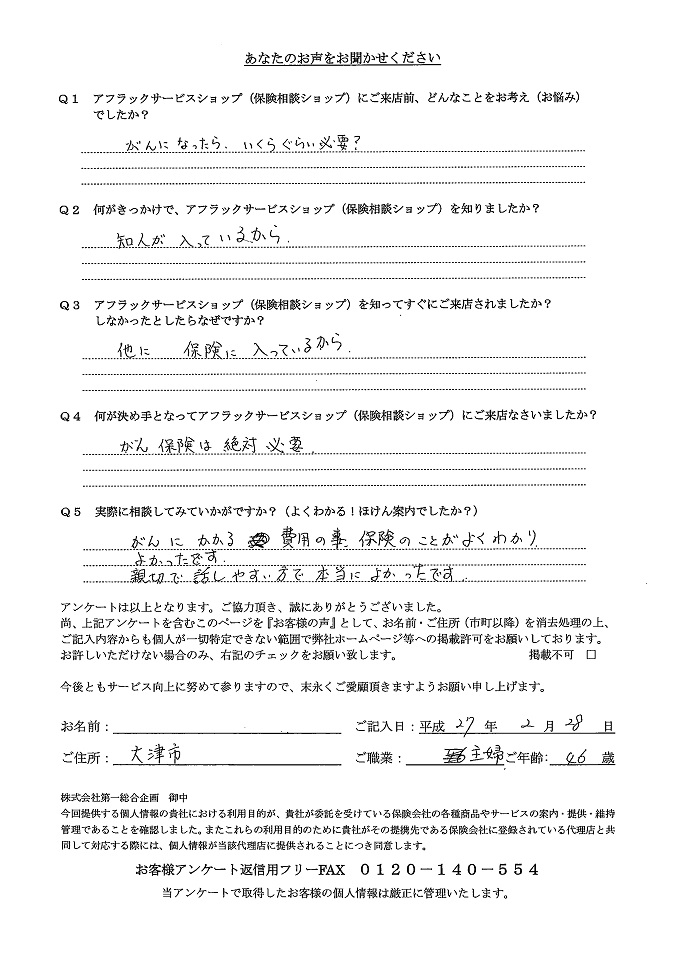 あなたのお声をお聞かせください
Q1 アフラックサービスショップ（保険相談ショップ）にご来店前、どんなことをお考え（お悩み）
でしたか？
がんになったら、いくらぐらい必要？
Q2 何がきっかけで、アフラックサービスショップ（保険相談ショップ）を知りましたか？
知人が入っているから．
Q3 アフラックサービスショップ（保険相談ショップ）を知ってすぐにご来店されましたか？
しなかったとしたらなぜですか？
他に 保険に入っているから．
Q4 何が決め手となってアフラックサービスショップ（保険相談ショップ）にご来店なさいましたか？
がん保険は絶対必要．
Q5 実際に相談してみていかがですか？（よくわかる！ほけん案内でしたか？）
がんにかかる 費用の事、保険のことがよくわかり
よかったです．
親切で話しやすい方で本当によかったです．
アンケートは以上となります。ご協力頂き、誠にありがとうございました。
尚、上記アンケートを含むこのページを『お客様の声』として、お名前・ご住所（市町以降）を消去処理の上、
ご記入内容からも個人が一切特定できない範囲で弊社ホームページ等への掲載許可をお願いしております。
お許しいただけない場合のみ、右記のチェックをお願い致します。 掲載不可 □
今後ともサービス向上に努めて参りますので、末永くご愛願頂きますようお願い申し上げます。
お名前： ご記入日：平成 27 年 2 月 28 日
ご住所： 大津市 ご職業： 主婦 ご年齢： 46 歳
株式会社第一総合企画 御中
今回提供する個人情報の貴社における利用目的が、貴社が委託を受けている保険会社の各種商品やサービスの案内・提供・維持
管理であることを確認しました。またこれらの利用目的のために貴社がその提携先である保険会社に登録されている代理店と共
同して対応する際には、個人情報が当該代理店に提供されることにつき同意します。
お客様アンケート返信用フリーFAX ０１２０－１４０－５５４
当アンケートで取得したお客様の個人情報は厳正に管理いたします。